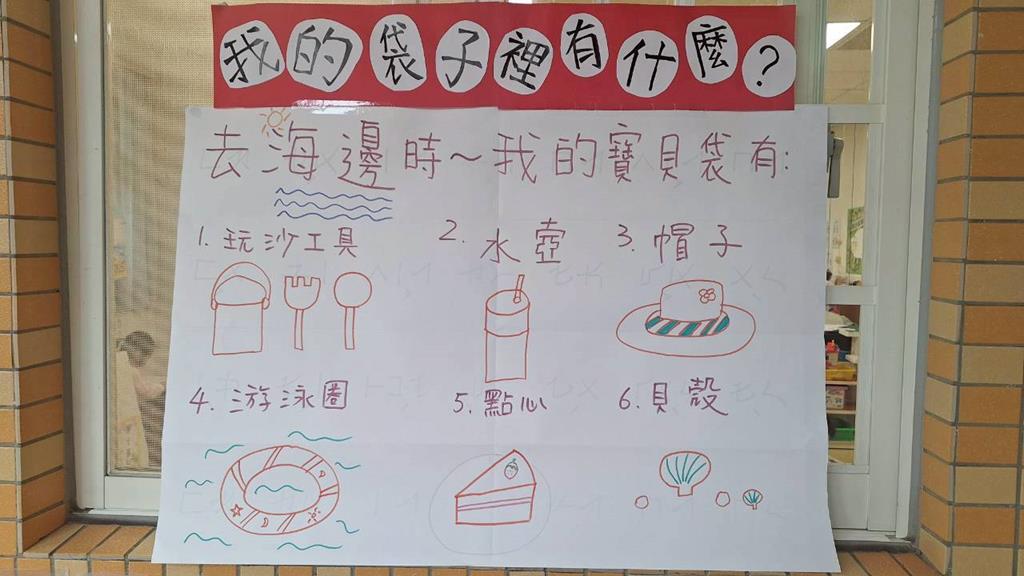 我的袋子裡有什麼?
去海邊時~我的寶貝袋有:
1. 玩沙工具
2. 水壺
3. 帽子
4. 游泳圈
5. 點心
6. 貝殼